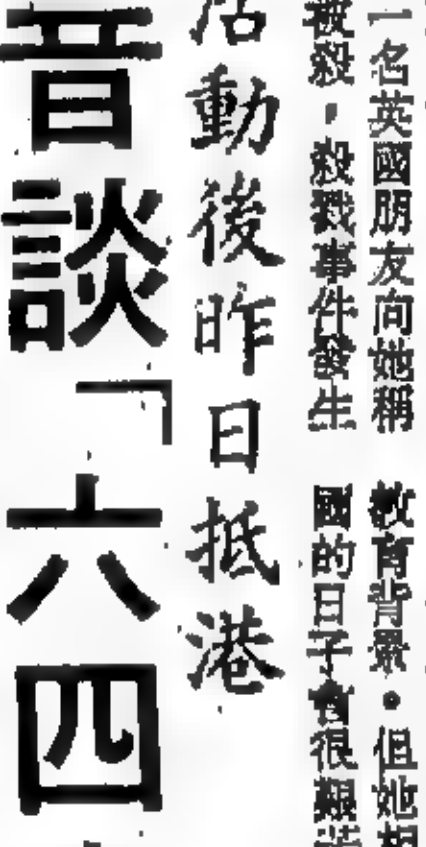 一名英國朋友向她稱
被殺，殺戮事件發生
教育背景。但她相
國的日子會很艱
活動後昨日抵港
音談「六四